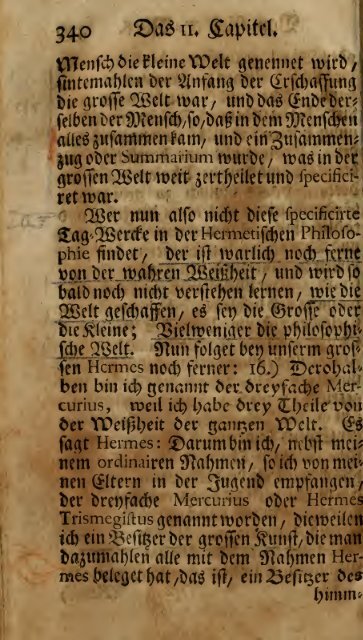 340 Das 11. Capitel.
Mensch die kleine Welt genennet wird/
sintemahlen der Anfang der Erschaffung
die grosse Welt war, und das Ende der-
selben der Mensch, so, daß in dem Menschen
alles zusammen kam, und ein Zusammen-
zug oder Summarium wurde, was in der
grossen Welt weit zertheilet und specifici-
ret war.
Wer nun also nicht diese specificirte
Tag-Wercke in der Hermetischen Philoso-
phie findet, der ist warlich noch ferne
von der wahren Weißheit, und wird so
bald noch nicht verstehen lernen, wie die
Welt geschaffen, es sey die Grosse oder
die Kleine; Vielweniger die philosophi-
sche Welt. Nun folget bey unserm gros-
sen Hermes noch ferner: 16.) Derohal-
ben bin ich genannt der dreyfache Mer-
curius, weil ich habe drey Theile von
der Weißheit der gantzen Welt. Es
sagt Hermes: Darum bin ich, nebst mei-
nem ordinairen Nahmen, so ich von mei-
nen Eltern in der Jugend empfangen,
der dreyfache Mercurius oder Hermes
Trismegistus genannt worden, dieweilen
ich ein Besitzer der grossen Kunst, die man
dazumahlen alle mit dem Nahmen Her-
mes beleget hat, das ist, ein Besitzer des
himm-